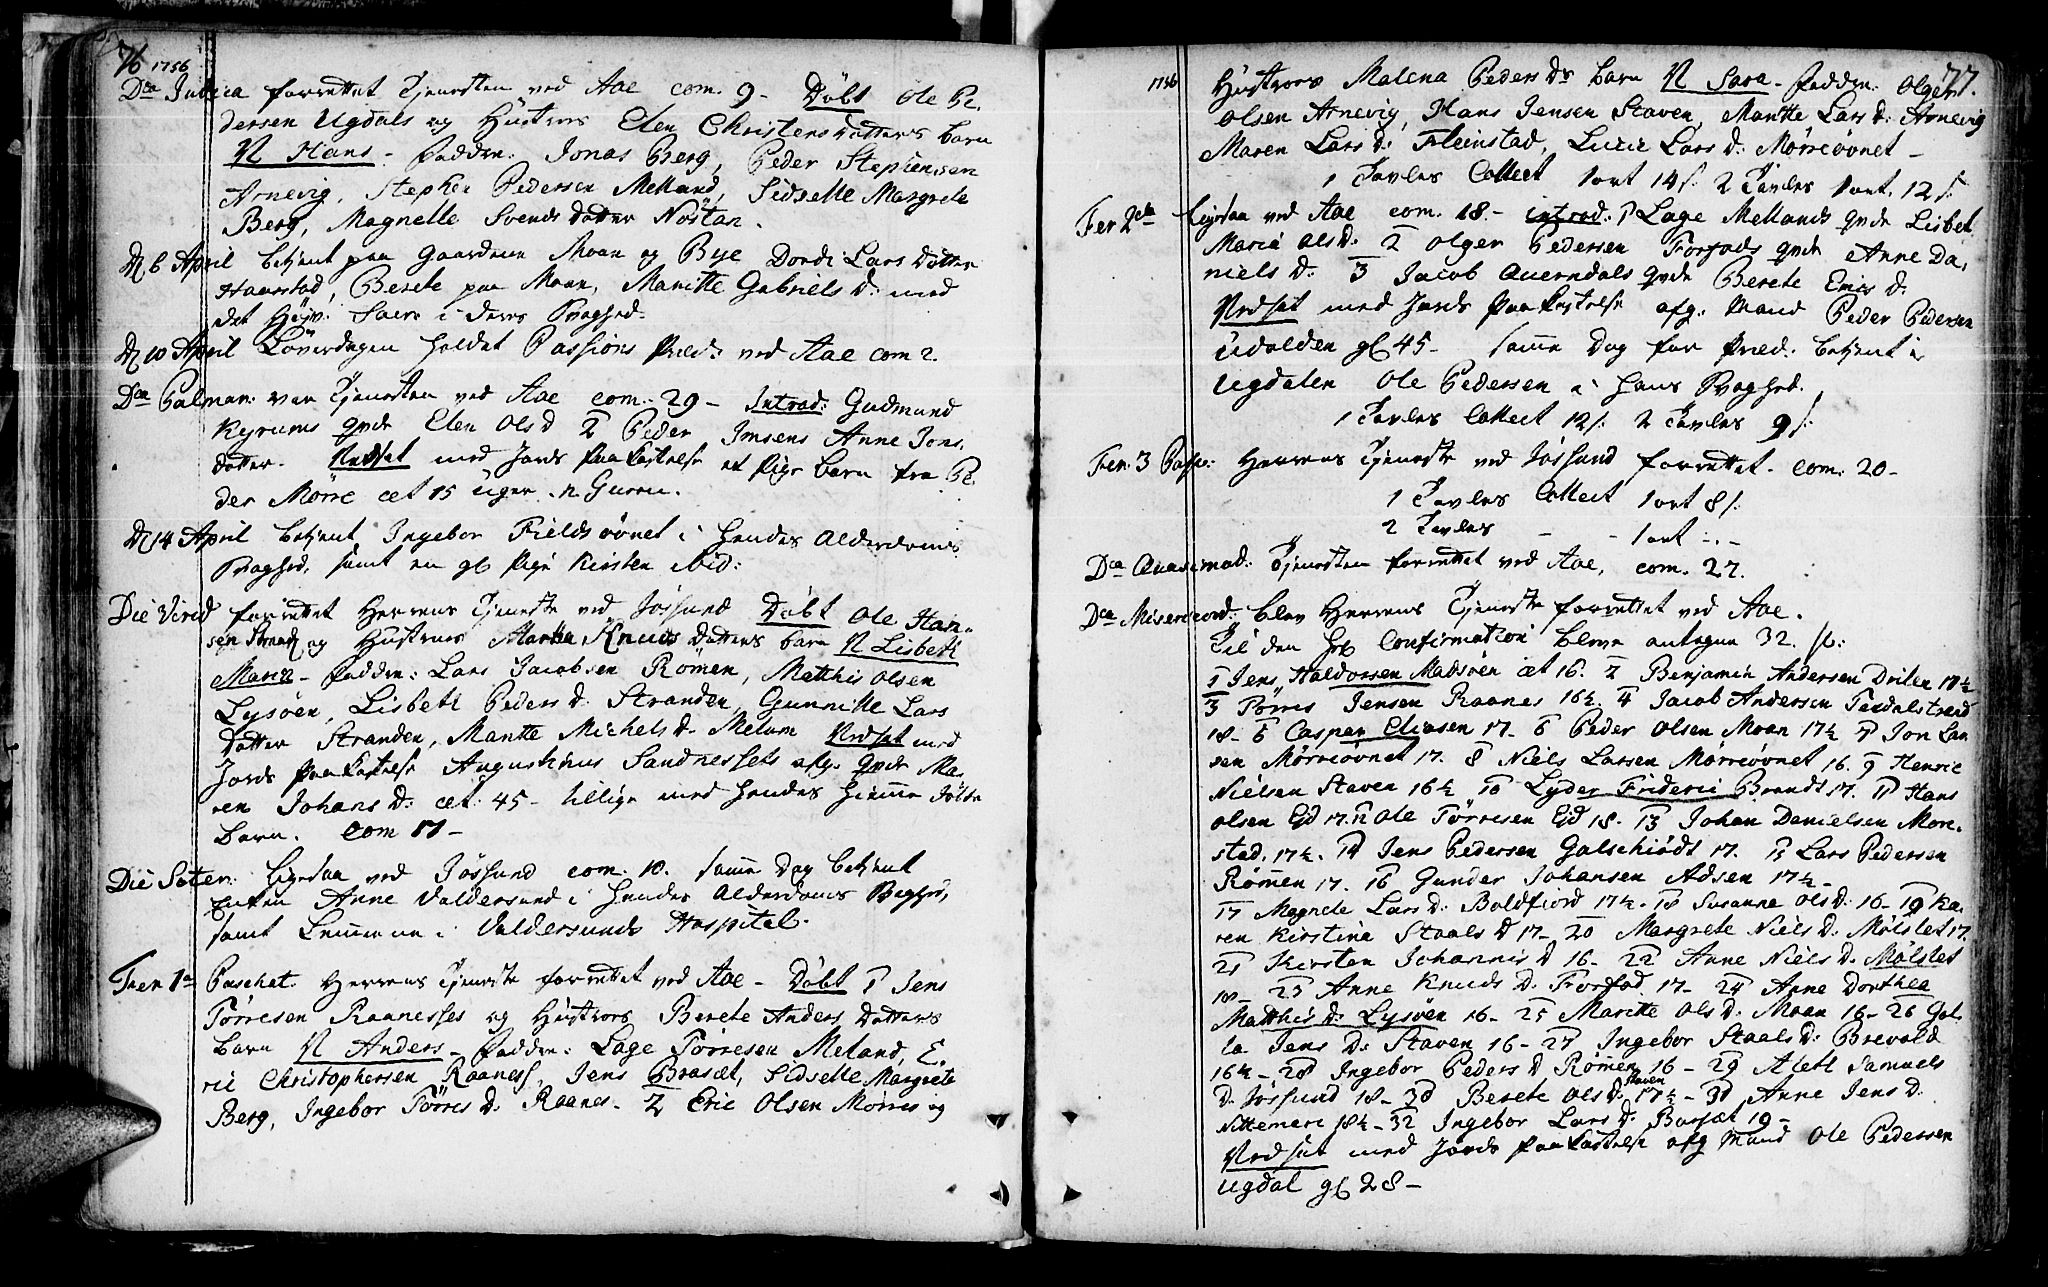 76 1756
Dca Judica forrettet Tjenesten ved Aae com. 9 - Döbt Ole Pe.
dersen Ugdals og Hüstrues Elen Christens Datters barn
N Hans - Fadder: Jonas Berg, Peder Stephensen
Arnevig, Stephen Pedersen Melland, Sidselle Margrete
Berg, Magnelle Svends Datter Nöstan.
D 6 April betient paa Gaardene Moan og Bye Dordi Lars Datter
Haarstad, Berete paa Moan, Maritte Gabriels D: med
det Høyv: Sacr: i deres Svaghed.
D 10 April Löverdagen holdet Passions Præd: ved Aae com 2.
Dca Palmar: var Tjenesten ved Aae com: 29 - Introd: Gudmund
Kejrums qvde Elen Ols D 2 Peder Imsens Anne Jons
datter. Nedsat med Jords Paakastelse et Pige barn fra Pe
der Mörre æt 15 uger. n. Guren.
D 14 April betient Ingebor Fieldsöönet i hendes Alderdoms
Svaghed, samt en gl Pige Kirsten ibid:
Die Virid forrettet Herrens Tjeneste ved Jössund Döbt Ole Han-
sen Strand og Hustrues Martha Knuds Datters barn N Lisbeth
Maria - Fadder: Lars Jacobsen Römen, Matthis Olsen
Lysöen, Lisbeth Peders D. Stranden, Gunnille Lars
Datter Stranden, Mantte Michels D. Melum Nedsat med
Jords Paakastelse Augustinus Sandnessets afg. qvde Ma
ren Johans D: æt: 45 - tillige med hendes hiemme döbte
barn. Com 17 -
Die Sater: Ligesaa ved Jössund com. 10. samme Dag betient
Enken Anne Valdersund i hendes Alderdoms Svaghed,
samt Lemmerne i Valdersunds Hospital.
Fer 1a Paschat. Herrens Tjeneste forrettet ved Aae - Döbt 1 Jens
Törresen Raanesses og Hustrues Berete Anders Datters
barn N Anders - Fadder: Lage Törresen Meland, E.
ric Christophersen Raaness, Jens Brasæt, Sidselle Margrete
Berg, Ingebor Törres D: Raanes. 2 Eric Olsen Mörres og
1756 77.
Hüstrues Malena Peders Ds barn N Sara - Fadder: Olger
Olsen Arnevig, Hans Jensen Staven, Mantte Lars D: Arnevig
Maren Lars D: Fleinstad, Lucie Lars D: Mörreöönet -
1 Tavles Collect 1 ort 14 s: 2 Tavles 1 ort. 12 s:
Fer 2da Ligesaa ved Aae com. 18. - introd: 1 Lage Mellands qvde Lisbet
Maria Ols D. 2 Olger Pedersen Forfods qvde Anne Da,
niels D. 3 Jacob Querndals qvde Berete Erics D.
Nedsat med Jords Paakastelse afg. Mand Peder Pedersen
Udalden gl 45 - samme Dag for Præd. betient i
Ugdalen Ole Pedersen i hans Svaghed.
1 Tavles Collect 12 s: 2 Tavles 9 s:
Fer. 3 Pasc: Herrens Tjeneste ved Jössund forrettet. com: 20 -
1 Tavles Collect 1 ort 8 s:
2 Tavles - - 1 ort -.-
Dca Quasimod: Tjenesten forrettet ved Aae, com. 27.
Dca Misericord: blev Herrens Tjeneste forrettet ved Aae.
Til den hel Confirmation bleve antagne 32. s:
1 Jens Haldorsen Madsöen æt 16. 2 Benjamin Andersen Driten 17½
3 Törris Jensen Raanes 16½ 4 Jacob Andersen Texdalstrand
18 - 5 Casper Eliasen 17 - 6 Peder Olsen Moan 17½ 7 Jon Lar
sen Mörreöönet 17. 8 Niels Larsen Mörreöönet 16. 9 Henric
Nielsen Staven 16½ 10 Lyder Frideric Brandt 17. 11 Hans
Olsen Eid 17. 12 Ole Törresen Eid 18. 13 Johan Danielsen Mor-
stad. 17½. 14 Jens Pedersen Galschiödt 17. 15 Lars Pedersen
Römen 17. 16 Gunder Johansen Adsen 17½ -
17 Magrete Lars D: Boldfiord 17½. 18 Susanne Ols D: 16 - 19 Ka.
ren Kirstina Staals D 17 - 20 Margrete Niels D: Mölslet 17.
21 Kirsten Johannis D 16 - 22 Anne Niels D: Mölslet
18 - 23 Anne Knuds D. Forfod 17 - 24 Anne Dorthea
Matthis D: Lysöen 16 - 25 Maritte Ols D: Moan 16 - 26 Gol.
la Jens D: Staven 16 - 27 Ingebor Staals D: Brevold
16½ - 28 Ingebor Peders D Römen 16 - 29 Aleth Samuels
D. Jössund 18 - 30 Berete Ols D: Staven 17½ - 31 Anne Jens D.
Nittemari 18½ - 32 Ingebor Lars D: Barsæt 19 -
Nedsat med Jords Paakastelse afg Mand Ole Pedersen
Ugdal gl 28 -